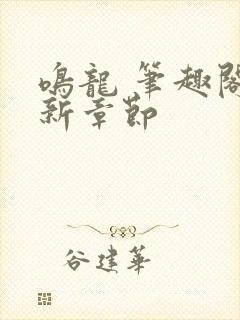 鳴龍 筆趣閣
新章節
谷建華